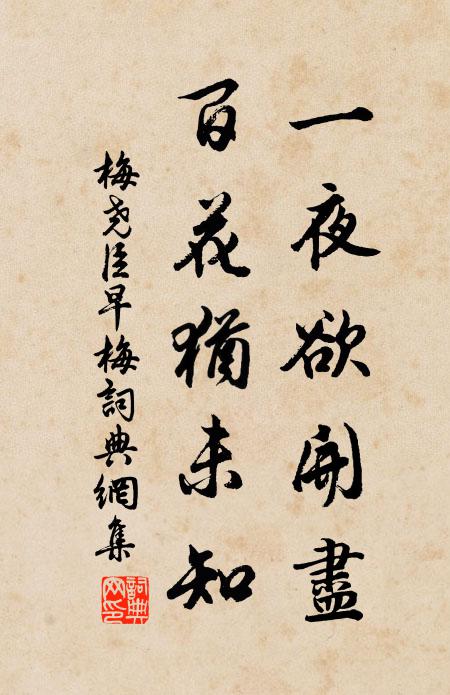 一夜欲開盡
百花猶未知
梅堯臣早梅詞典網集
詞典网印